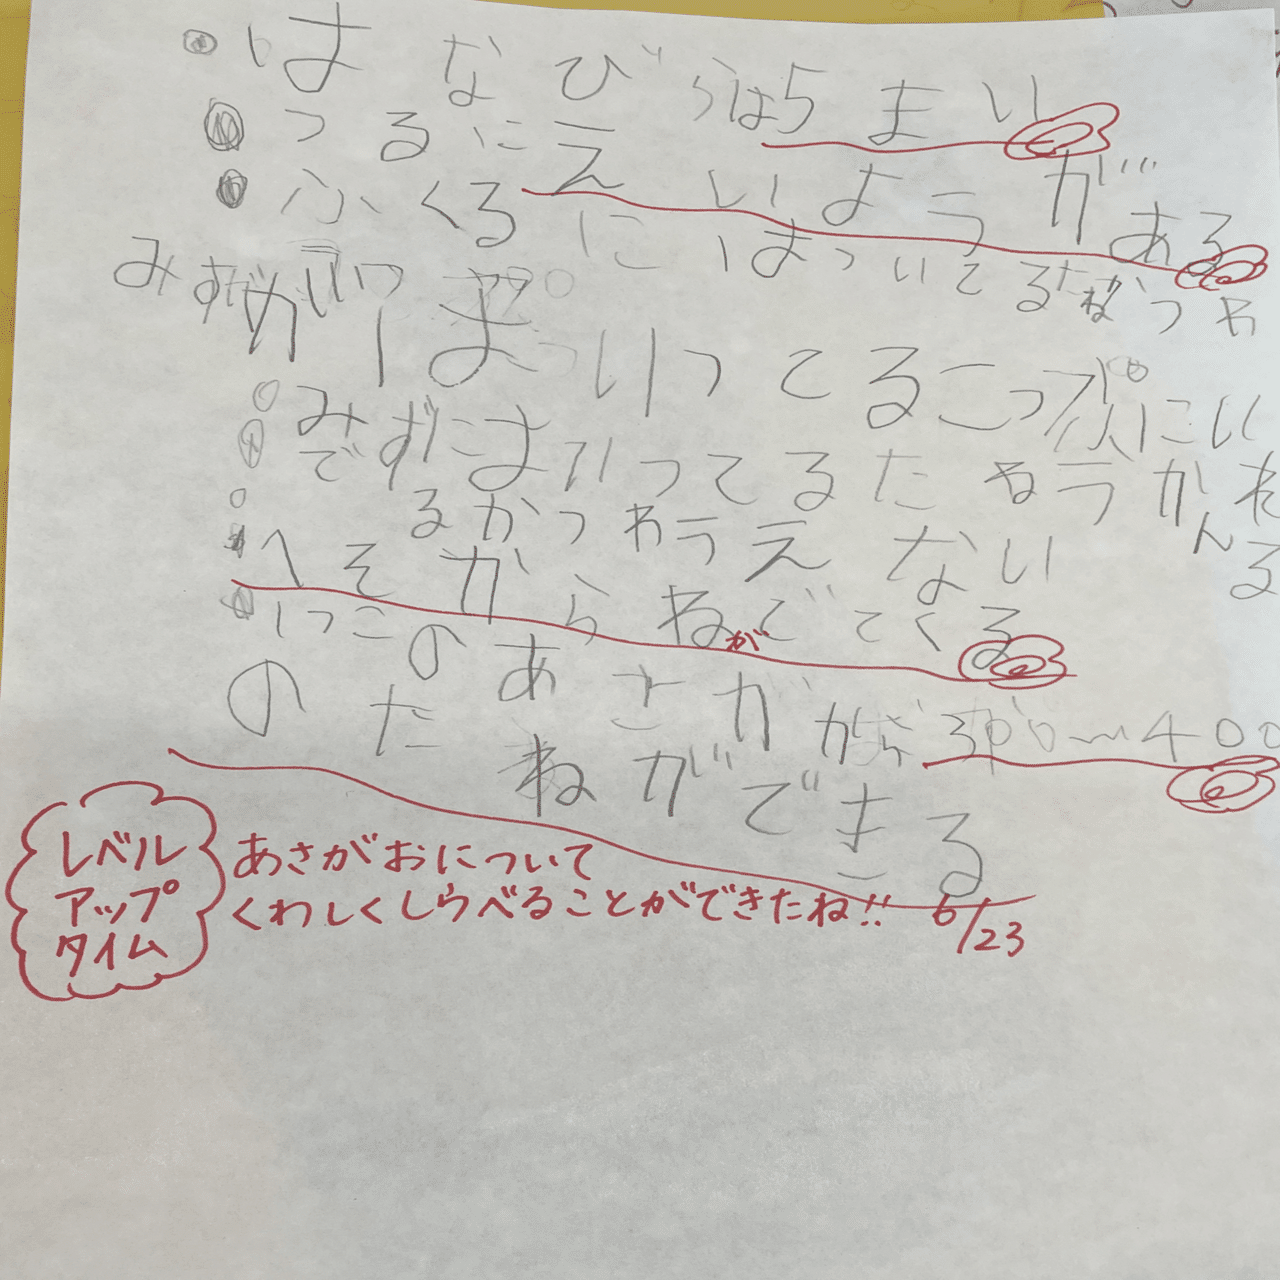 はなびらは5まい
つるにえいようがある
ふくろにはっいてるたねかつか
みずが
はいってるこっぷにい
みずにはいってるたねうかんれ
でるかつかうえない る
へそからねがでてくる
いっこのあさがから300〜400
のたねができる
レベル
アップ
タイム
あさがおについて
くわしくしらべることができたね!!
6/23